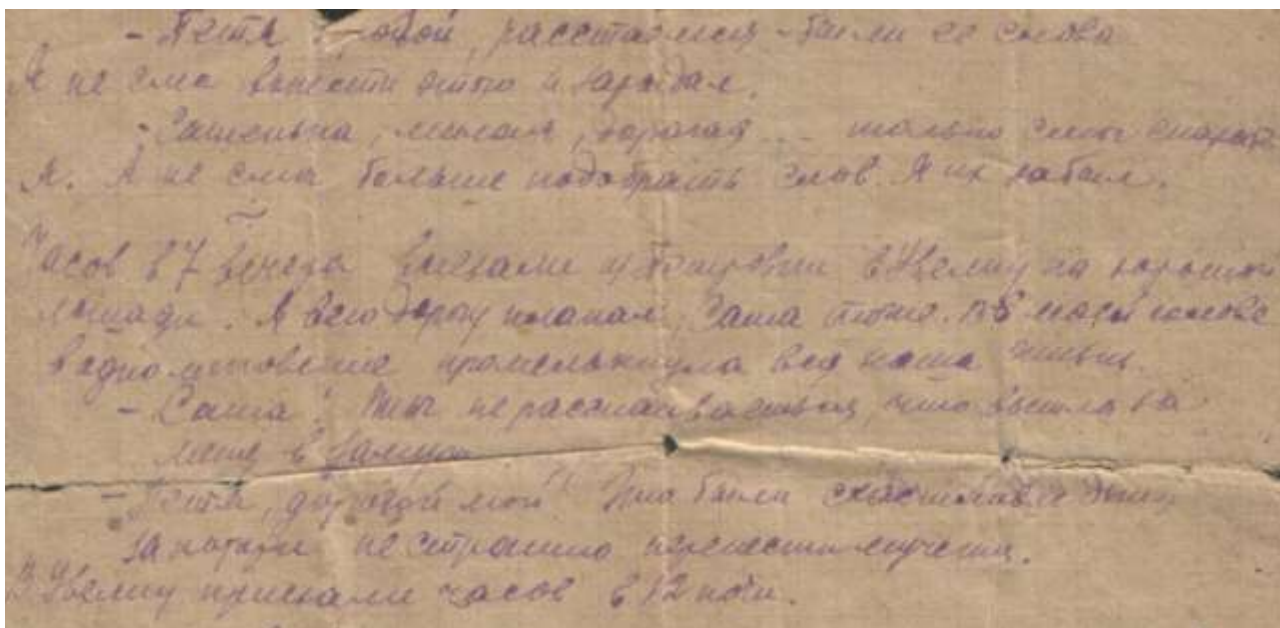 - Петя дорогой, расстаемся - были ее слова
Я не смог вынести этого и зарыдал.
- Сашенька, милая, дорогая ... только смог сказать
я. Я не смог больше подобрать слов. Я их забыл.
Часов в 7 вечера выехали из Петровки в Увелку на хорошей
лошади. Я всю дорогу плакал, Саша тоже. В моей голове
в одно мгновение промелькнула вся наша жизнь.
- Саша! Ты не раскаиваешься, что вышла за
меня замуж
- Петя, дорогой мой! Это были счастливые дни,
за которые не страшно перенести мучения.
В Увелку приехали часов в 12 ночи.